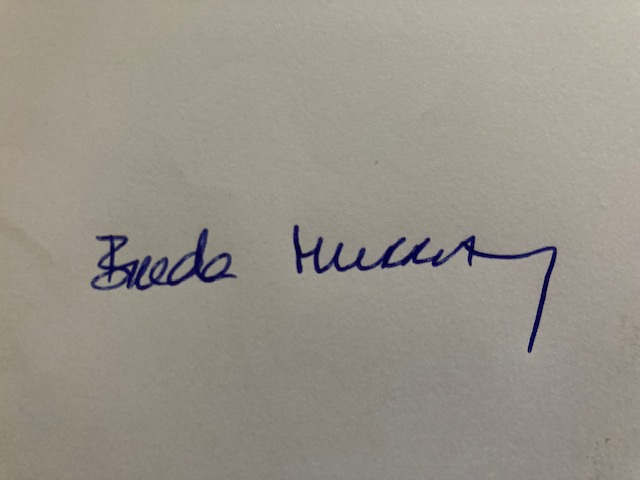 Breda Murray